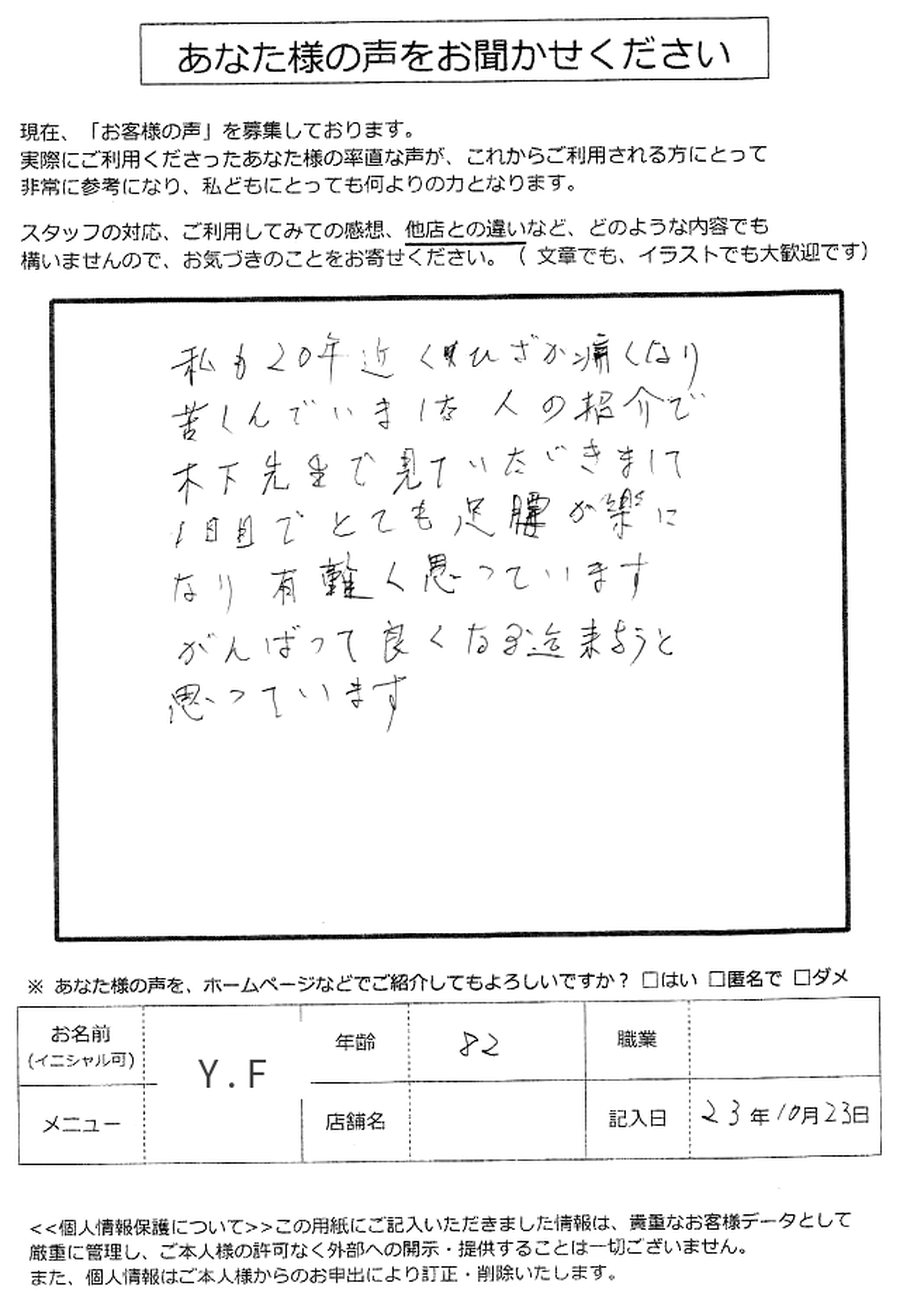 あなた様の声をお聞かせください
現在、「お客様の声」を募集しております。
実際にご利用くださったあなた様の率直な声が、これからご利用される方にとって
非常に参考になり、私どもにとっても何よりの力となります。
スタッフの対応、ご利用してみての感想、他店との違いなど、どのような内容でも
構いませんので、お気づきのことをお寄せください。（ 文章でも、イラストでも大歓迎です）
私も20年近くひざが痛くなり
苦しんでいました 人の紹介で
木下先生で見ていただきまして
1日目でとても足腰が楽に
なり 有難く思っています
がんばって良くなる迄来ようと
思っています
※ あなた様の声を、ホームページなどでご紹介してもよろしいですか？ □はい □匿名で □ダメ
お名前
(イニシャル可)
Y.F
年齢
82
職業
メニュー
店舗名
記入日
23年10月23日
<<個人情報保護について>>この用紙にご記入いただきました情報は、貴重なお客様データとして
厳重に管理し、ご本人様の許可なく外部への開示・提供することは一切ございません。
また、個人情報はご本人様からのお申出により訂正・削除いたします。